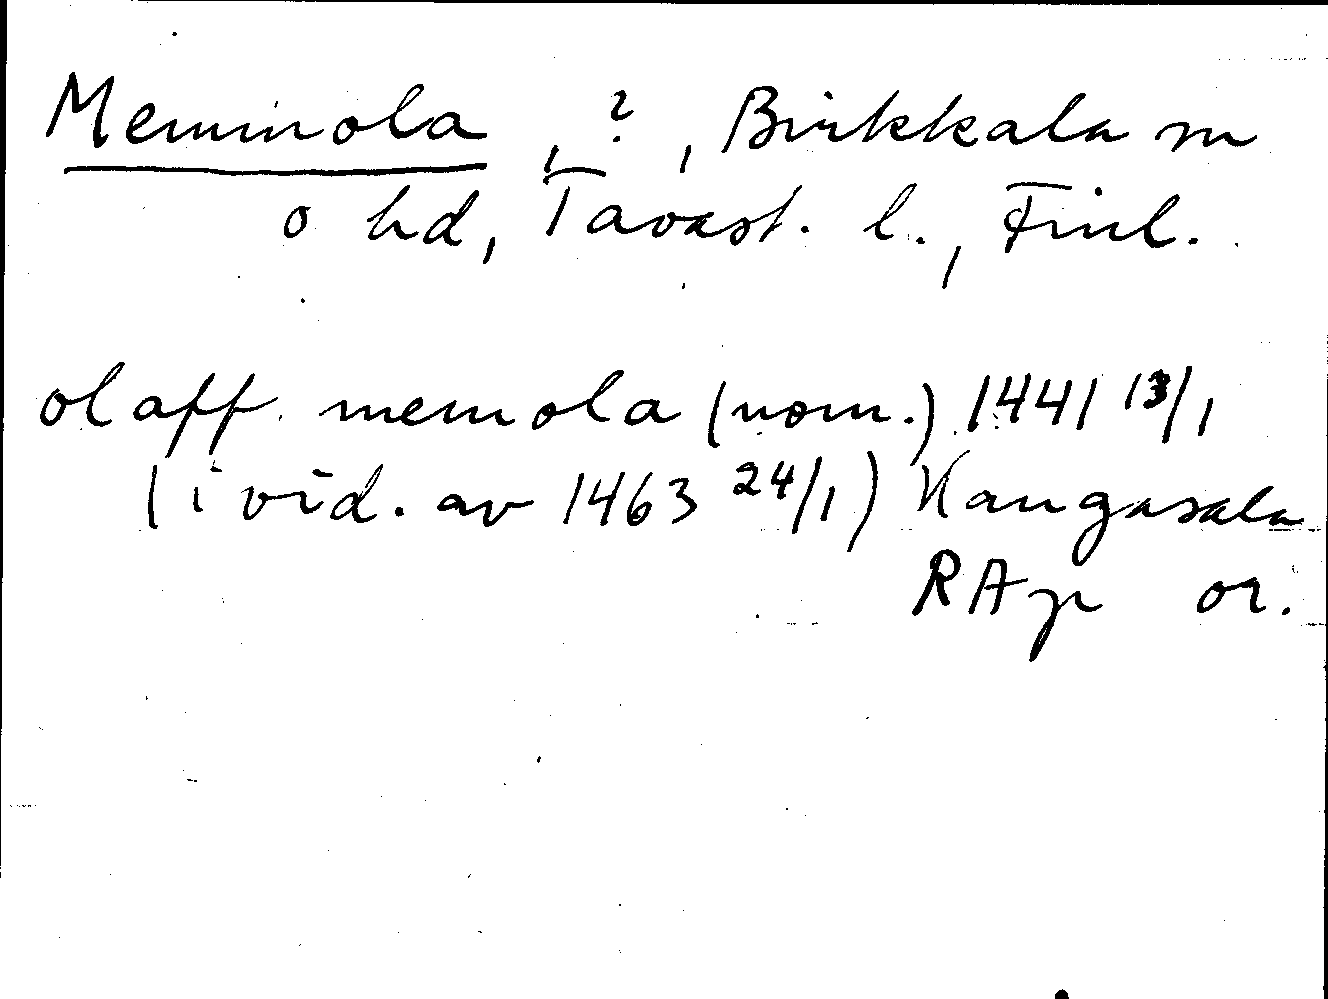 Memmola, ?, Birkkala sn
o hd, Tavast. l., Finl.
olaff memola (nom.) 1441 13/1
(i vid. av 1463 24/1) Kangasala
RAp or.